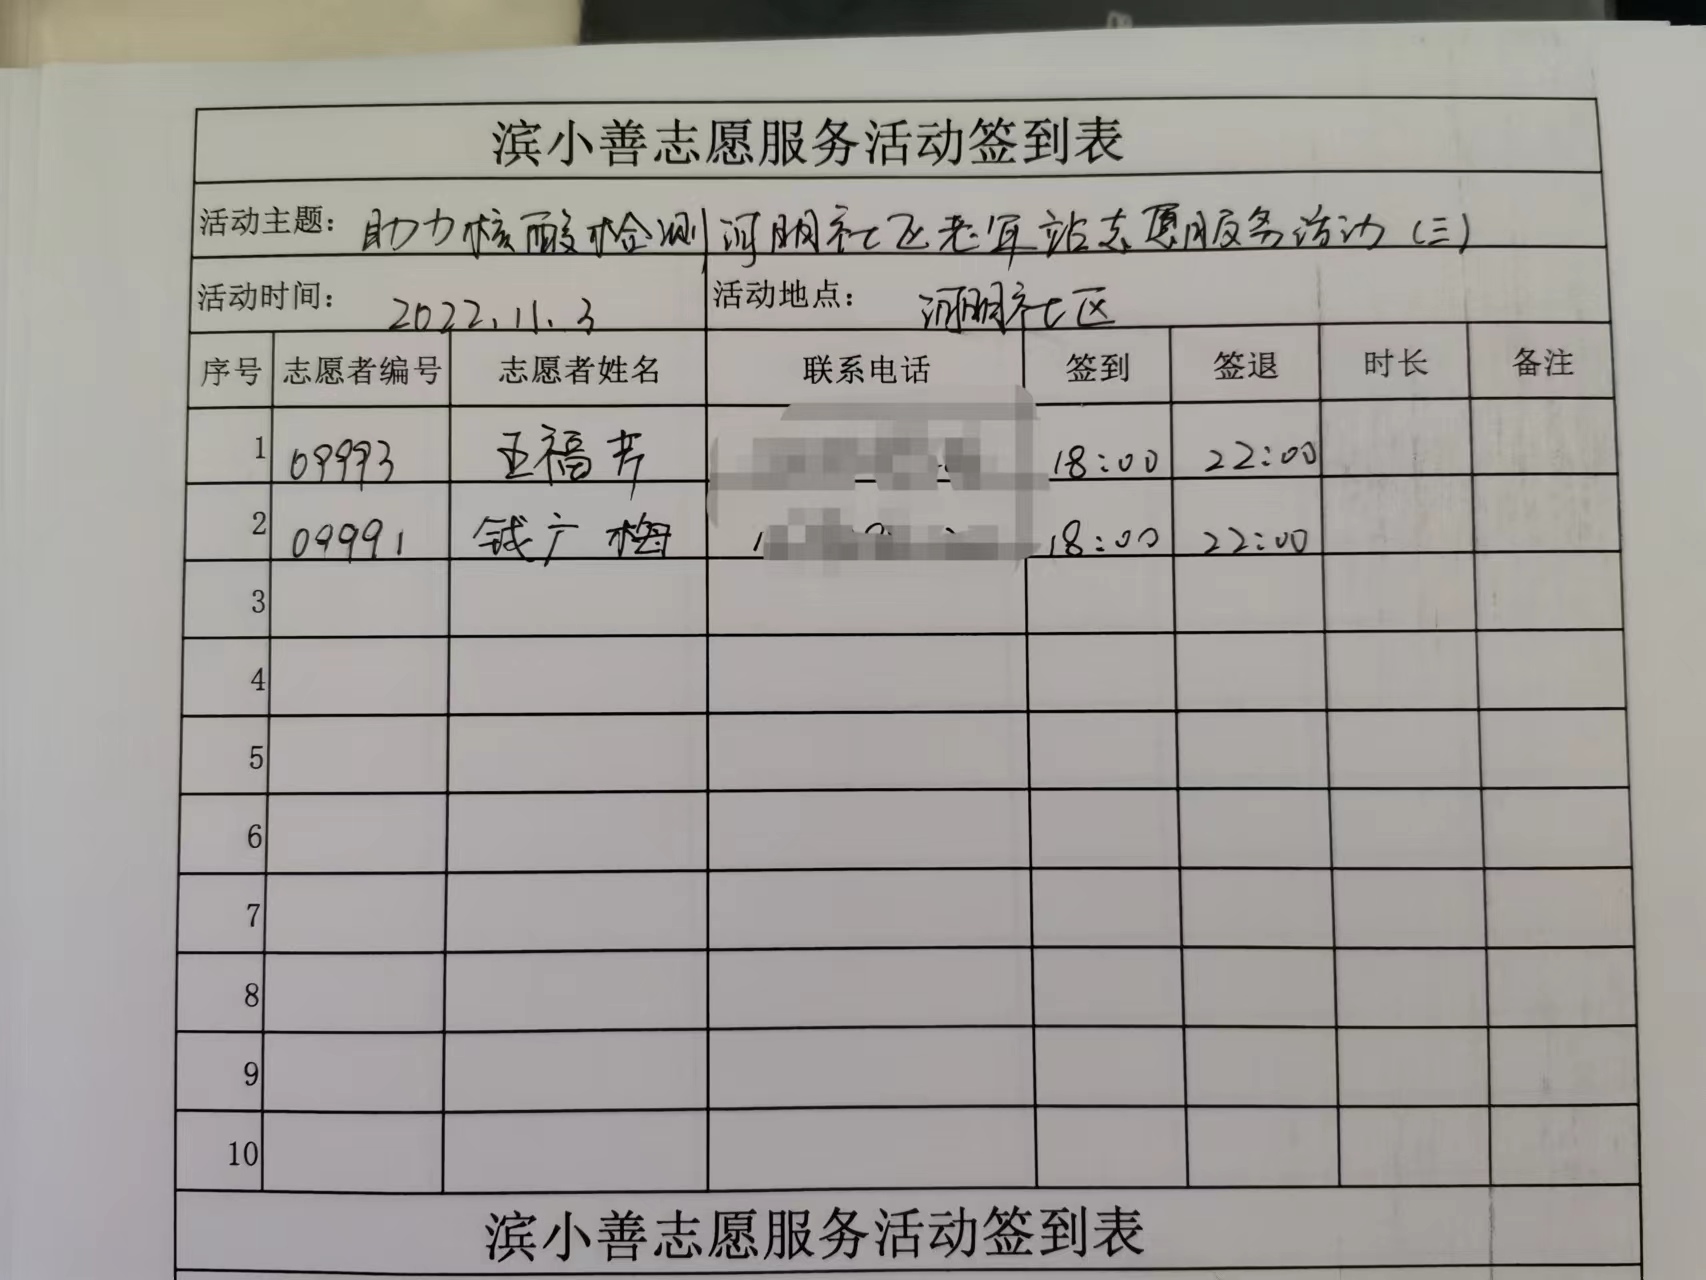 滨小善志愿服务活动签到表
活动主题: 助力核酸检测河明社区老年站志愿服务活动(三)
活动时间: 2022.11.3 活动地点: 河明社区
序号 志愿者编号 志愿者姓名 联系电话 签到 签退 时长 备注
1 09993 王福芳 18:00 22:00
2 09991 钱广梅 18:00 22:00
3
4
5
6
7
8
9
10
滨小善志愿服务活动签到表